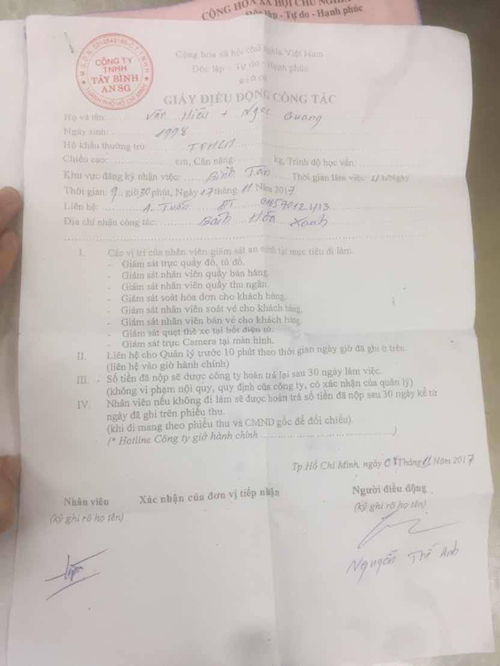 CỘNG HÒA XÃ HỘI CHỦ NGHĨA
Độc lập - Tự do - Hạnh phúc
CÔNG TY
TNHH
TÂY BÌNH
AN SG
Cộng hòa xã hội chủ nghĩa Việt Nam
Độc lập - Tự do - Hạnh phúc
GIẤY ĐIỀU ĐỘNG CÔNG TÁC
Họ và tên: Văn Hiếu + Ngọc Quang
Ngày sinh: 1998
Hộ khẩu thường trú: TPHCM
Chiều cao: cm, Cân nặng: kg, Trình độ học vấn:
Khu vực đăng ký nhận việc: Bình Tân Thời gian làm việc:
Thời gian: 9 giờ 30 phút, Ngày 07 tháng 11 Năm 2017
Liên hệ: A. Tuấn ĐT
Địa chỉ nhận công tác: Bách Hóa Xanh
I. Các vị trí của nhân viên giám sát an ninh tại mục tiêu đi làm.
- Giám sát trực quầy đồ, tủ đồ.
- Giám sát nhân viên quầy bán hàng.
- Giám sát nhân viên quầy thu ngân.
- Giám sát soát hóa đơn cho khách hàng.
- Giám sát nhân viên soát vé cho khách hàng.
- Giám sát nhân viên bán vé cho khách hàng.
- Giám sát quẹt thẻ xe tại bốt điện tử.
- Giám sát trực Camera tại màn hình.
II. Liên hệ cho Quản lý trước 10 phút theo thời gian ngày giờ đã ghi ở trên.
(liên hệ vào giờ hành chính)
III. Số tiền đã nộp sẽ được công ty hoàn trả lại sau 30 ngày làm việc.
(không vi phạm nội quy, quy định của công ty, có xác nhận của quản lý)
IV. Nhân viên nếu không đi làm sẽ được hoàn trả số tiền đã nộp sau 30 ngày kể từ
ngày đã ghi trên phiếu thu.
(khi đi mang theo phiếu thu và CMND gốc để đối chiếu).
(* Hotline Công ty giờ hành chính )
Tp Hồ Chí Minh, ngày 07 Tháng 11 Năm 2017
Nhân viên Xác nhận của đơn vị tiếp nhận Người điều động
(ký ghi rõ họ tên) (ký ghi rõ họ tên)
Nguyễn Thế Anh